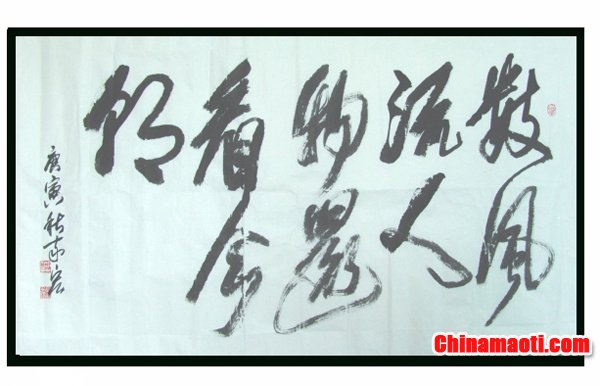 数风
流人
物还
看今
朝
庚寅秋
Chinamaoti.com